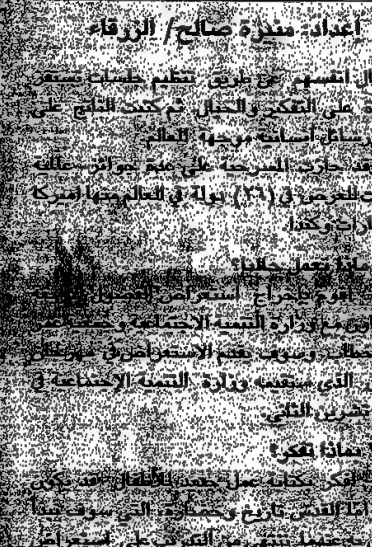 اعداد: منذرة صالح / الزرقاء
ال انفسهم عن طريق تنظيم جلسات تستفز
ة على التفكير والخيال ثم كتبت الناتج على
رسائل إنسانية موجهة للعالم
قد حازت المسرحية على عدة جوائز عالمية
ت للعرض في (٢٦) دولة في العالم منها امريكا
ارات وكندا
ماذا تعمل حاليا؟
اقوم باخراج استعراض الفصول
اون مع وزارة التنمية الاجتماعية و
وسوف يقدم الاستعراض في مهرجان
الذي ستقيمه وزارة التنمية الاجتماعية في
تشرين الثاني
بماذا تفكر؟
افكر بكتابة عمل جديد للأطفال قد يكون
القدس تاريخ وحضارة التي سوف نبدأ
عندما ننتهي من التدريب على استعراض